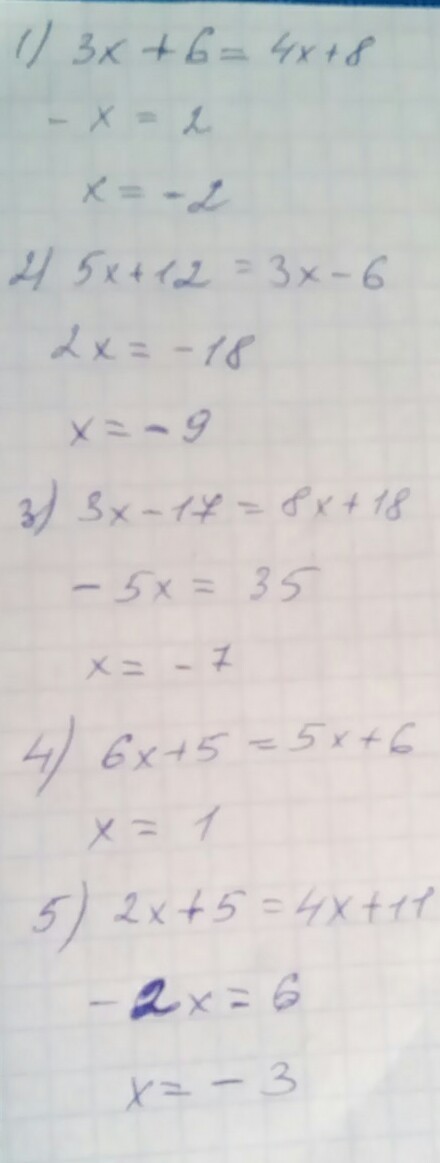 1) 3x + 6 = 4x + 8
- x = 2
x = - 2
2) 5x + 12 = 3x - 6
2x = - 18
x = - 9
3) 3x - 17 = 8x + 18
- 5x = 35
x = - 7
4) 6x + 5 = 5x + 6
x = 1
5) 2x + 5 = 4x + 11
- 2x = 6
x = - 3